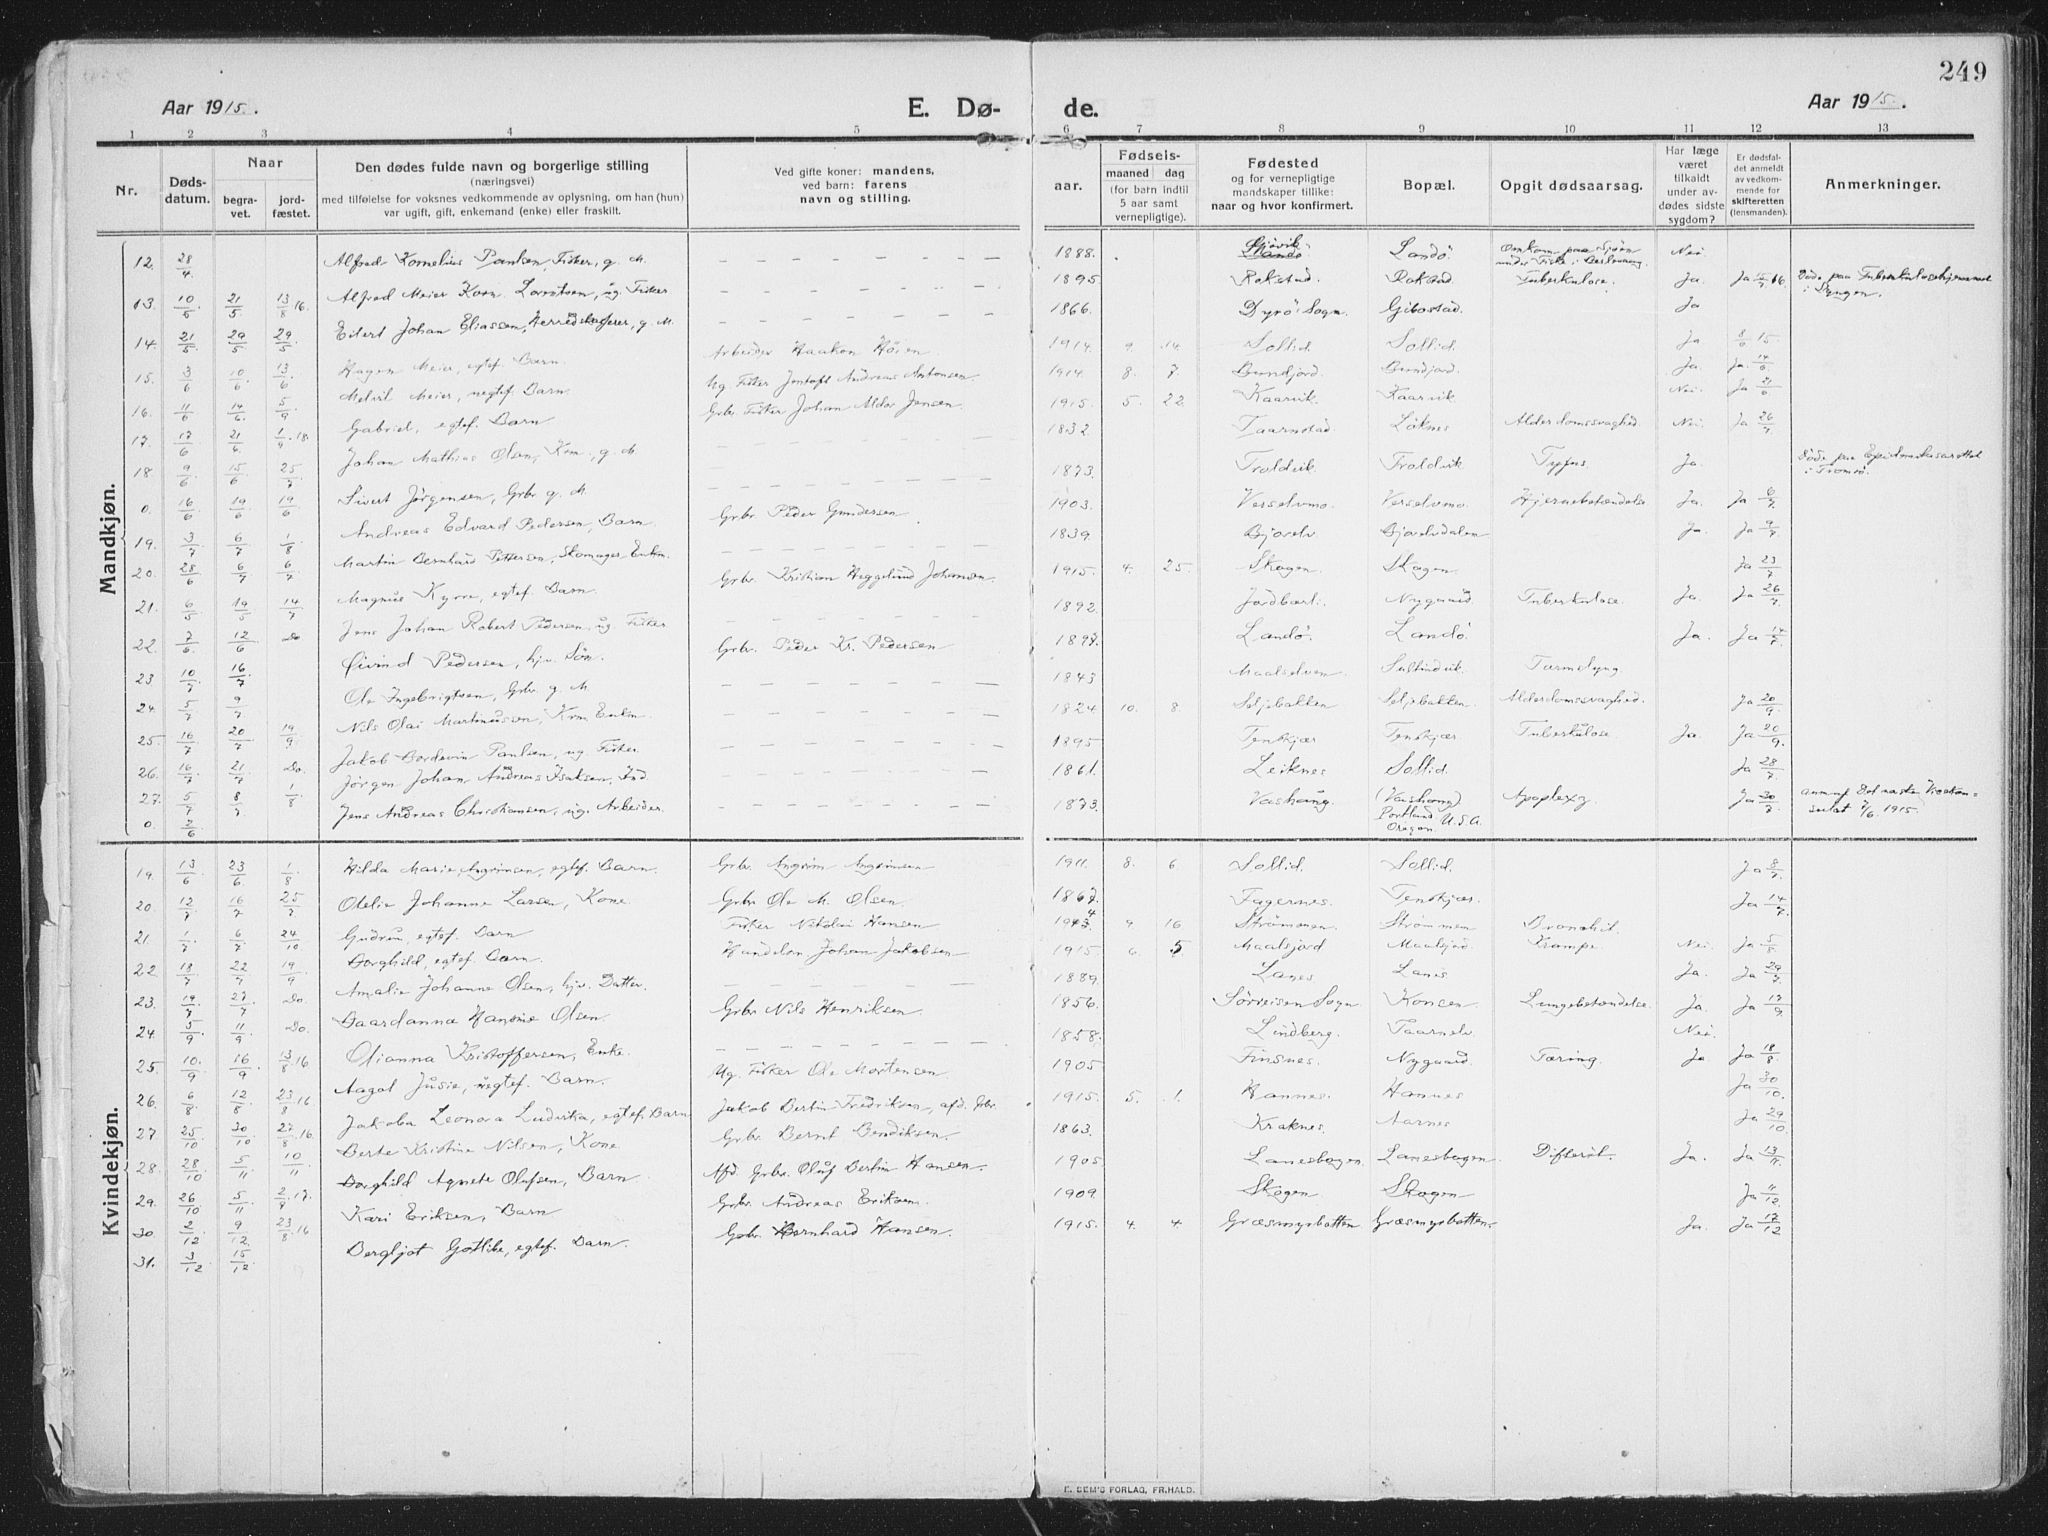 249
Aar 1915.
E. Dø-
de.
Aar 1915.
1 2 3 4 5 6 7 8 9 10 11 12 13
Nr.
Døds-
datum.
Naar
begra-
vet.
jord-
fæstet.
Den dødes fulde navn og borgerlige stilling
(næringsvei)
med tilføielse for voksnes vedkommende av oplysning, om han (hun)
var ugift, gift, enkemand (enke) eller fraskilt.
Ved gifte koner: mandens,
ved barn: farens
navn og stilling.
aar.
Fødsels-
maaned dag
(for barn indtil
5 aar samt
vernepligtige).
Fødested
og for vernepligtige
mandskaper tillike:
naar og hvor konfirmert.
Bopæl.
Opgit dødsaarsag.
Har læge
været
tilkaldt
under av-
dødes sidste
sygdom?
Er dødsfal-
det anmeldt
av vedkom-
mende for
skifteretten
(lensmanden).
Anmerkninger.
Mandkjøn.
12. 28/4 Alfred Kornelius Paulsen, Fisker, g. M. 1888. Gjövik. Landö. Nei
13. 10/5 21/5 13/8 16 Alfred Meier Korn. Lorntsen, ug. Fisker 1895 Rokstad. Rokstad. Tuberkulose. Ja. Döde paa Tuberkulosehjemmet i Lyngen.
14. 21/5 29/5 29/5 Eilert Johan Eliassen, Herredskasserer, g. M. 1866. Dyrö Sogn. Gibostad. Ja
15. 3/6 10/6 13/6 Hagen Meier, egtef. Barn Arbeider Haakon Höien 1914 9. 14. Sollid. Sollid. Ja 8/6 15.
16. 11/6 14/6 5/9 Melvil Meier, uegtef. Barn. Ug. Fisker Jentoft Andreas Antonsen 1914 8. 7. Gundjord. Gundjord. Ja. Ja. 14/6
17. 17/6 21/6 1/9 18. Gabriel, egtef. Barn Grbr. Fisker Johan Aldor Jensen. 1915. 5. 22. Kaarvik. Kaarvik Nei. Ja 21/6
18 9/6 15/6 25/7 Johan Mathias Olsen, Krm., g. M. 1832. Taarnstad. Löknes Alderdomssvaghed. Nei. Ja 26/7
0. 16/6 19/6 19/6 Sivert Jörgensen, Grbr. g. M. 1873. Troldvik. Troldvik Tyfus. Ja. Döde paa Epidemilasarettet i Tromsö.
19. 3/7 6/7 1/8 Andreas Edvard Pedersen, Barn Grbr. Peder Gundersen 1903. Verselvmo. Verselvmo. Hjernebetændelse Ja. Ja 6/7
20. 28/6 6/7 6/7 Martin Bernhard Pettersen, Skomager, Enkm. 1839. Gjövelv Gjövelvdalen Ja. Ja 9/7
21. 6/5 19/5 14/7 Magnus Kyrre, egtef. Barn. Grbr. Kristian Heggelund Johansen. 1915. 4. 25. Skogen. Skogen. Ja 23/7
22. 7/6. 12/6 Do Jens Johan Robert Pedersen, ug. Fisker 1892. Jordbærli. Nygaard. Tuberkulose. Ja. Ja 26/7
23 10/7 16/7 Öivind Pedersen, hjv. Sön. Grbr. Peder Kr. Pedersen Landö. Landö. Ja. Ja 14/7
24. 5/7 9/7 Ole Ingebrigtsen, Grbr. g. M. 1843 Maalselven. Sultindvik. Tarmslyng
25. 16/7 20/7 19/9 Nils Olai Martinussen, Krm. Enkm. 1824 10. 8 Seljebakken Seljebakken Alderdomssvaghed. Ja 20/9
26. 16/7 21/7 Do. Jakob Bordevin Paulsen, ug. Fisker. 1895 Tenskjær Tenskjær Tuberkulose Ja. Ja 20/9.
27. 5/7 8/7 1/8 Jörgen Johan Andreas Isaksen, Ind. 1861. Leiknes Sollid. Ja 28/7
0. 2/6 Jens Andreas Christiansen, ug. Arbeider. 1873. Vashaug. (Vashaug) Portland U.S.A. Oregon. Apoplexy Ja 30/7
Kvindekjøn.
19. 13/6 23/6 1/8 Hilda Marie Angrimsen, egtef. Barn. Grbr. Angrim Angrimsen 1911. 8. 6 Sollid. Sollid. Ja 8/7
20. 12/7 16/7 25/7 Otelie Johanne Larsen, Kone. Grbr. Ole M. Olsen. Fagernes. Tenskjær. Ja 14/7
21. 1/7 6/7 24/10 Gudrun, egtef. Barn Fisker Nikolai Hansen 9 16 Strömmen. Strömmen Bronchit.
22. 18/7 22/7 19/9 Borghild, egtef. Barn. Handelsm. Johan Jakobsen 1915 6. 5 Maalsjord Maalsjord Krampe. Nei. Ja. 5/8
23. 19/7 27/7 Do. Amalie Johanne Olsen, hjv. Datter. 1889 Lanes Lanes Ja. Ja 29/7
24. 5/9 11/9 Do. Baardanna Hansine Olsen. Grbr. Nils Henriksen 1856. Sörreisen Sogn Konsen Lungebetændelse. Ja. Ja 17/9
25. 10/9 16/9 13/8 16 Olianna Kristoffersen, Enke. 1858. Lindberg. Taarnelv Nei.
26. 6/8 12/8 23/8 16 Aagot Jusie, uegtef. Barn. Ug. Fisker Ole Mortensen 1905 Finsnes. Nygaard Tæring. Ja Ja 18/8
27. 25/10 30/10 27/8 16. Jakoba Leonora Ludvika, egtef. Barn Jakob Bertin Fredriksen, afd. Grbr. 1915. 5. 1. Hannes. Hannes Ja 30/10.
28. 28/10 5/11 10/11 Berte Kristine Nilsen, Kone Grbr. Bernt Bendiksen. 1863. Kraknes. Aarnes Ja 29/10
29. 26/10 5/11 2/9 17. Borghild Agnete Olufsen, Barn. Afd. Grbr. Oluf Bertin Hansen. 1905 Lanesbogen. Lanesbogen Difterit. Ja. Ja 13/11
30. 2/12 9/12. 23/8 16 Kari Eriksen, Barn Grbr. Andreas Eriksen. 1909. Skogen Skogen Ja 11/12
31. 3/12 15/12 Bergljot Gotlibe, egtef. Barn. Grbr. Bernhard Hansen. 1915. 4. 4 Græsmyrbotten Græsmyrbotten. Ja. Ja 17/12
E. SEM'S FORLAG, FR.HALD.